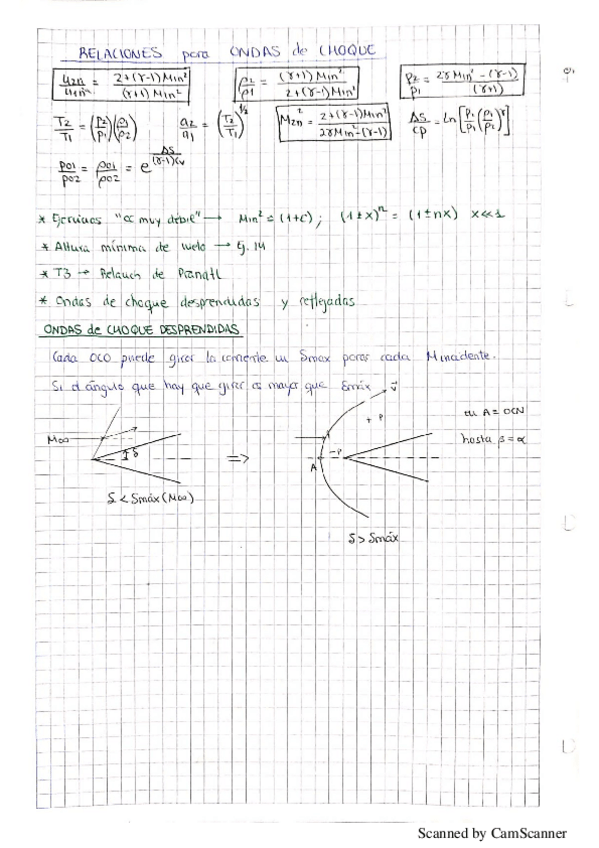 RELACIONES para ONDAS de CHOQUE
u2n/u1n = 2+(γ-1)M1n²/(γ+1)M1n²   ρ2/ρ1 = (γ+1)M1n²/2+(γ-1)M1n²   P2/P1 = 2γM1n²-(γ-1)/(γ+1)
T2/T1 = (P2/P1)(ρ1/ρ2)   a2/a1 = (T2/T1)^1/2   M2n² = 2+(γ-1)M1n²/2γM1n²-(γ-1)   ΔS/cp = Ln
P01/P02 = ρ01/ρ02 = e^ΔS/(γ-1)cv
* Ejercicios "cc muy débil" → M1n² = (1+ε); (1±x)^n = (1±nx) x<<1
* Altura mínima de vuelo → Ej. 14
* T3 → Relación de Prandtl
* Ondas de choque desprendidas y reflejadas
ONDAS de CHOQUE DESPRENDIDAS
Cada OCO puede girar la corriente un δmax para cada M incidente.
Si el ángulo que hay que girar es mayor que δmáx
M∞
δ
δ < δmáx (M∞)
=>
V
+ P
-P
A
en A = OCN
hasta β = α
δ > δmáx
Scanned by CamScanner